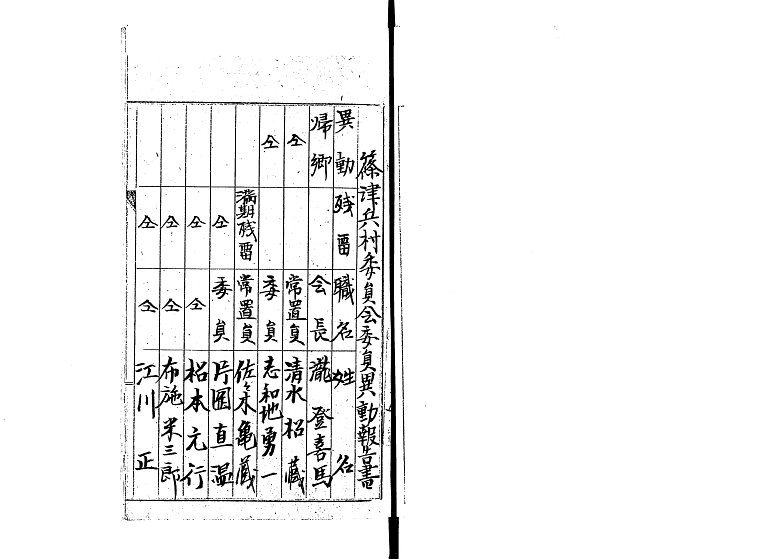 篠津兵村委員会委員異動報告書
異動 残畄 職名 姓名
帰郷 会長 瀧登喜馬
仝 常置員 清水松蔵
仝 委員 志和地勇一
満期残畄 常置員 佐々木亀蔵
仝 委員 片岡直温
仝 仝 松本元行
仝 仝 布施米三郎
仝 仝 江川正